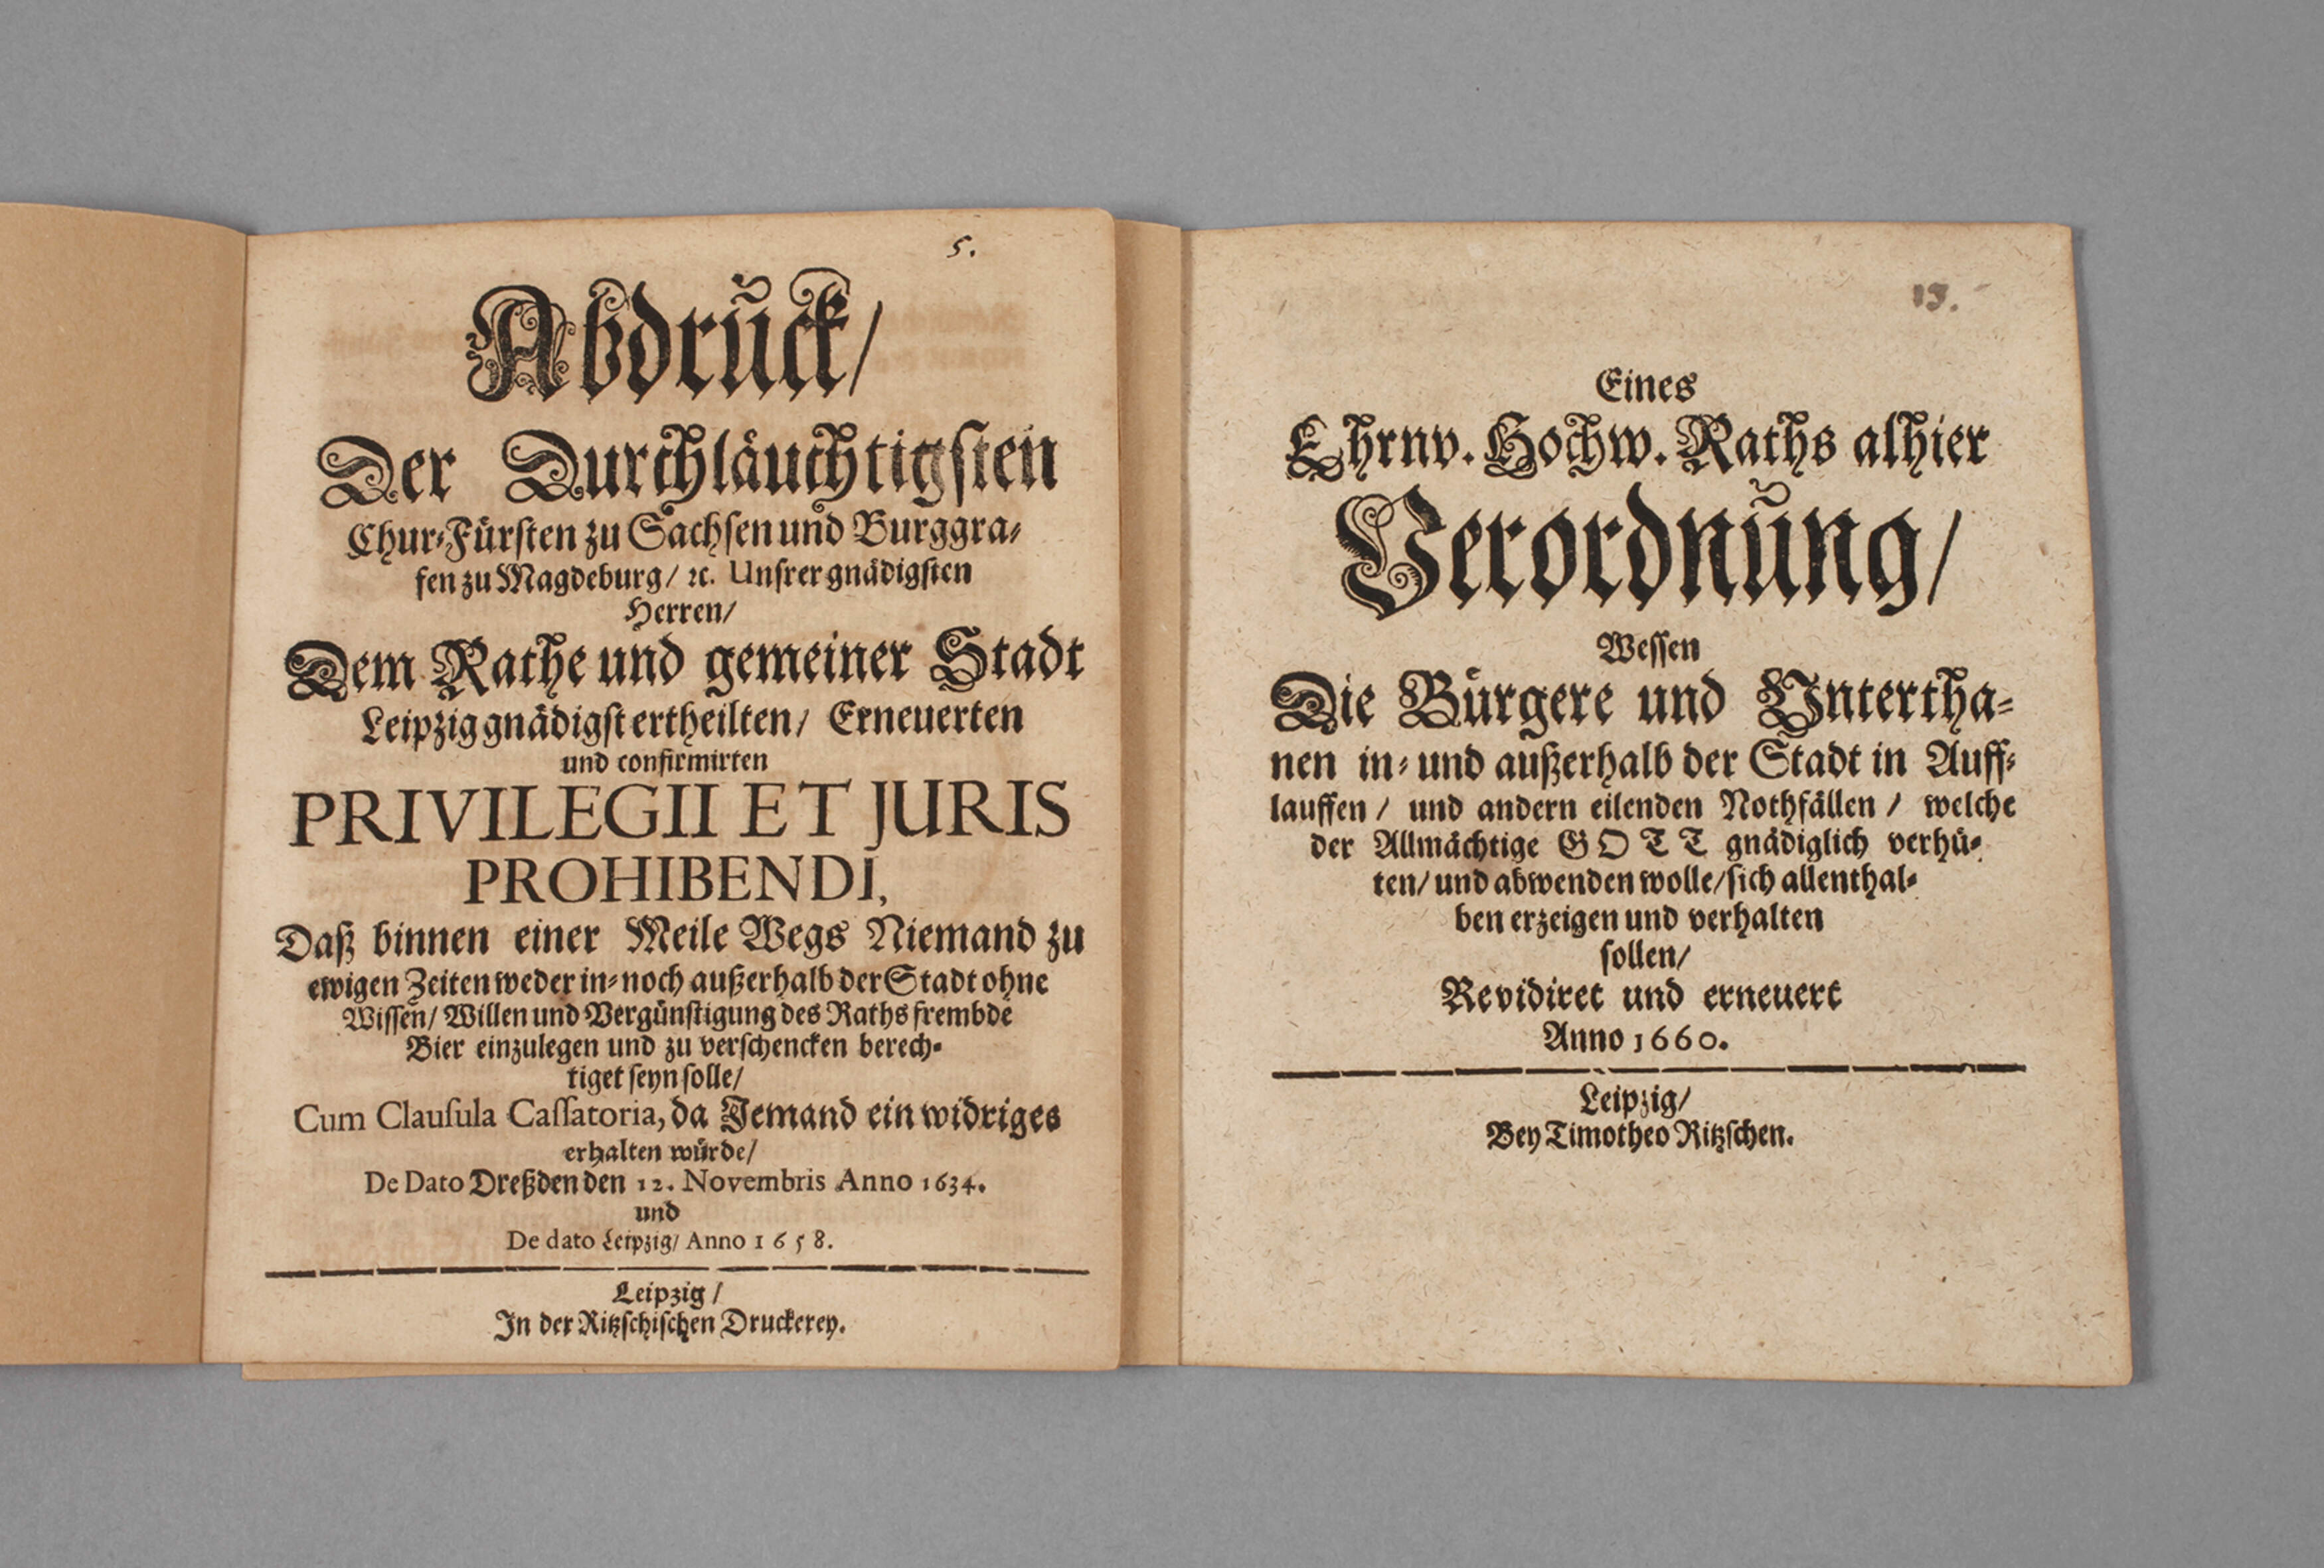 5.
Abdruck/
Der Durchläuchtigsten
Chur-Fürsten zu Sachsen und Burggra-
fen zu Magdeburg/ ꝛc. Unsrer gnädigsten
Herren/
Dem Rathe und gemeiner Stadt
Leipzig gnädigst ertheilten/ Erneuerten
und confirmirten
PRIVILEGII ET JURIS
PROHIBENDI,
Daß binnen einer Meile Wegs Niemand zu
ewigen Zeiten weder in- noch außerhalb der Stadt ohne
Wissen/ Willen und Vergünstigung des Raths frembde
Bier einzulegen und zu verschencken berech-
tiget seyn solle/
Cum Clausula Cassatoria, da Jemand ein widriges
erhalten würde/
De Dato Dreßden den 12. Novembris Anno 1634.
und
De dato Leipzig/ Anno 1658.
Leipzig/
In der Ritzschischen Druckerey.
13.
Eines
Ehrnv. Hochw. Raths alhier
Verordnung/
Wessen
Die Bürgere und Untertha-
nen in- und außerhalb der Stadt in Auff-
lauffen/ und andern eilenden Nothfällen/ welche
der Allmächtige GOTT gnädiglich verhü-
ten/ und abwenden wolle/ sich allenthal-
ben erzeigen und verhalten
sollen/
Revidiret und erneuert
Anno 1660.
Leipzig/
Bey Timotheo Ritzschen.